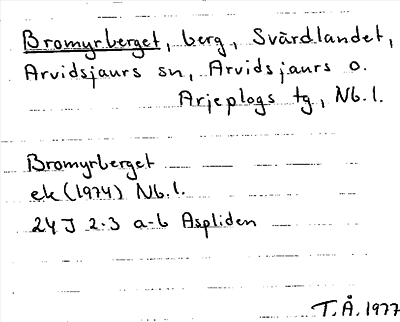 Bromyrberget, berg, Svärdlandet,
Arvidsjaurs sn, Arvidsjaurs o.
Arjeplogs tg, Nb. l.
Bromyrberget
ek (1974) Nb. l.
24 J 2-3 a-b Aspliden
T. Å. 1977